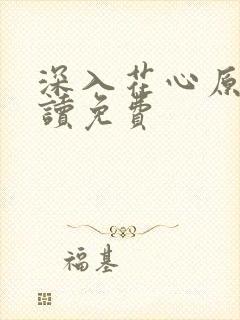 深入花心原
讀免費
福基